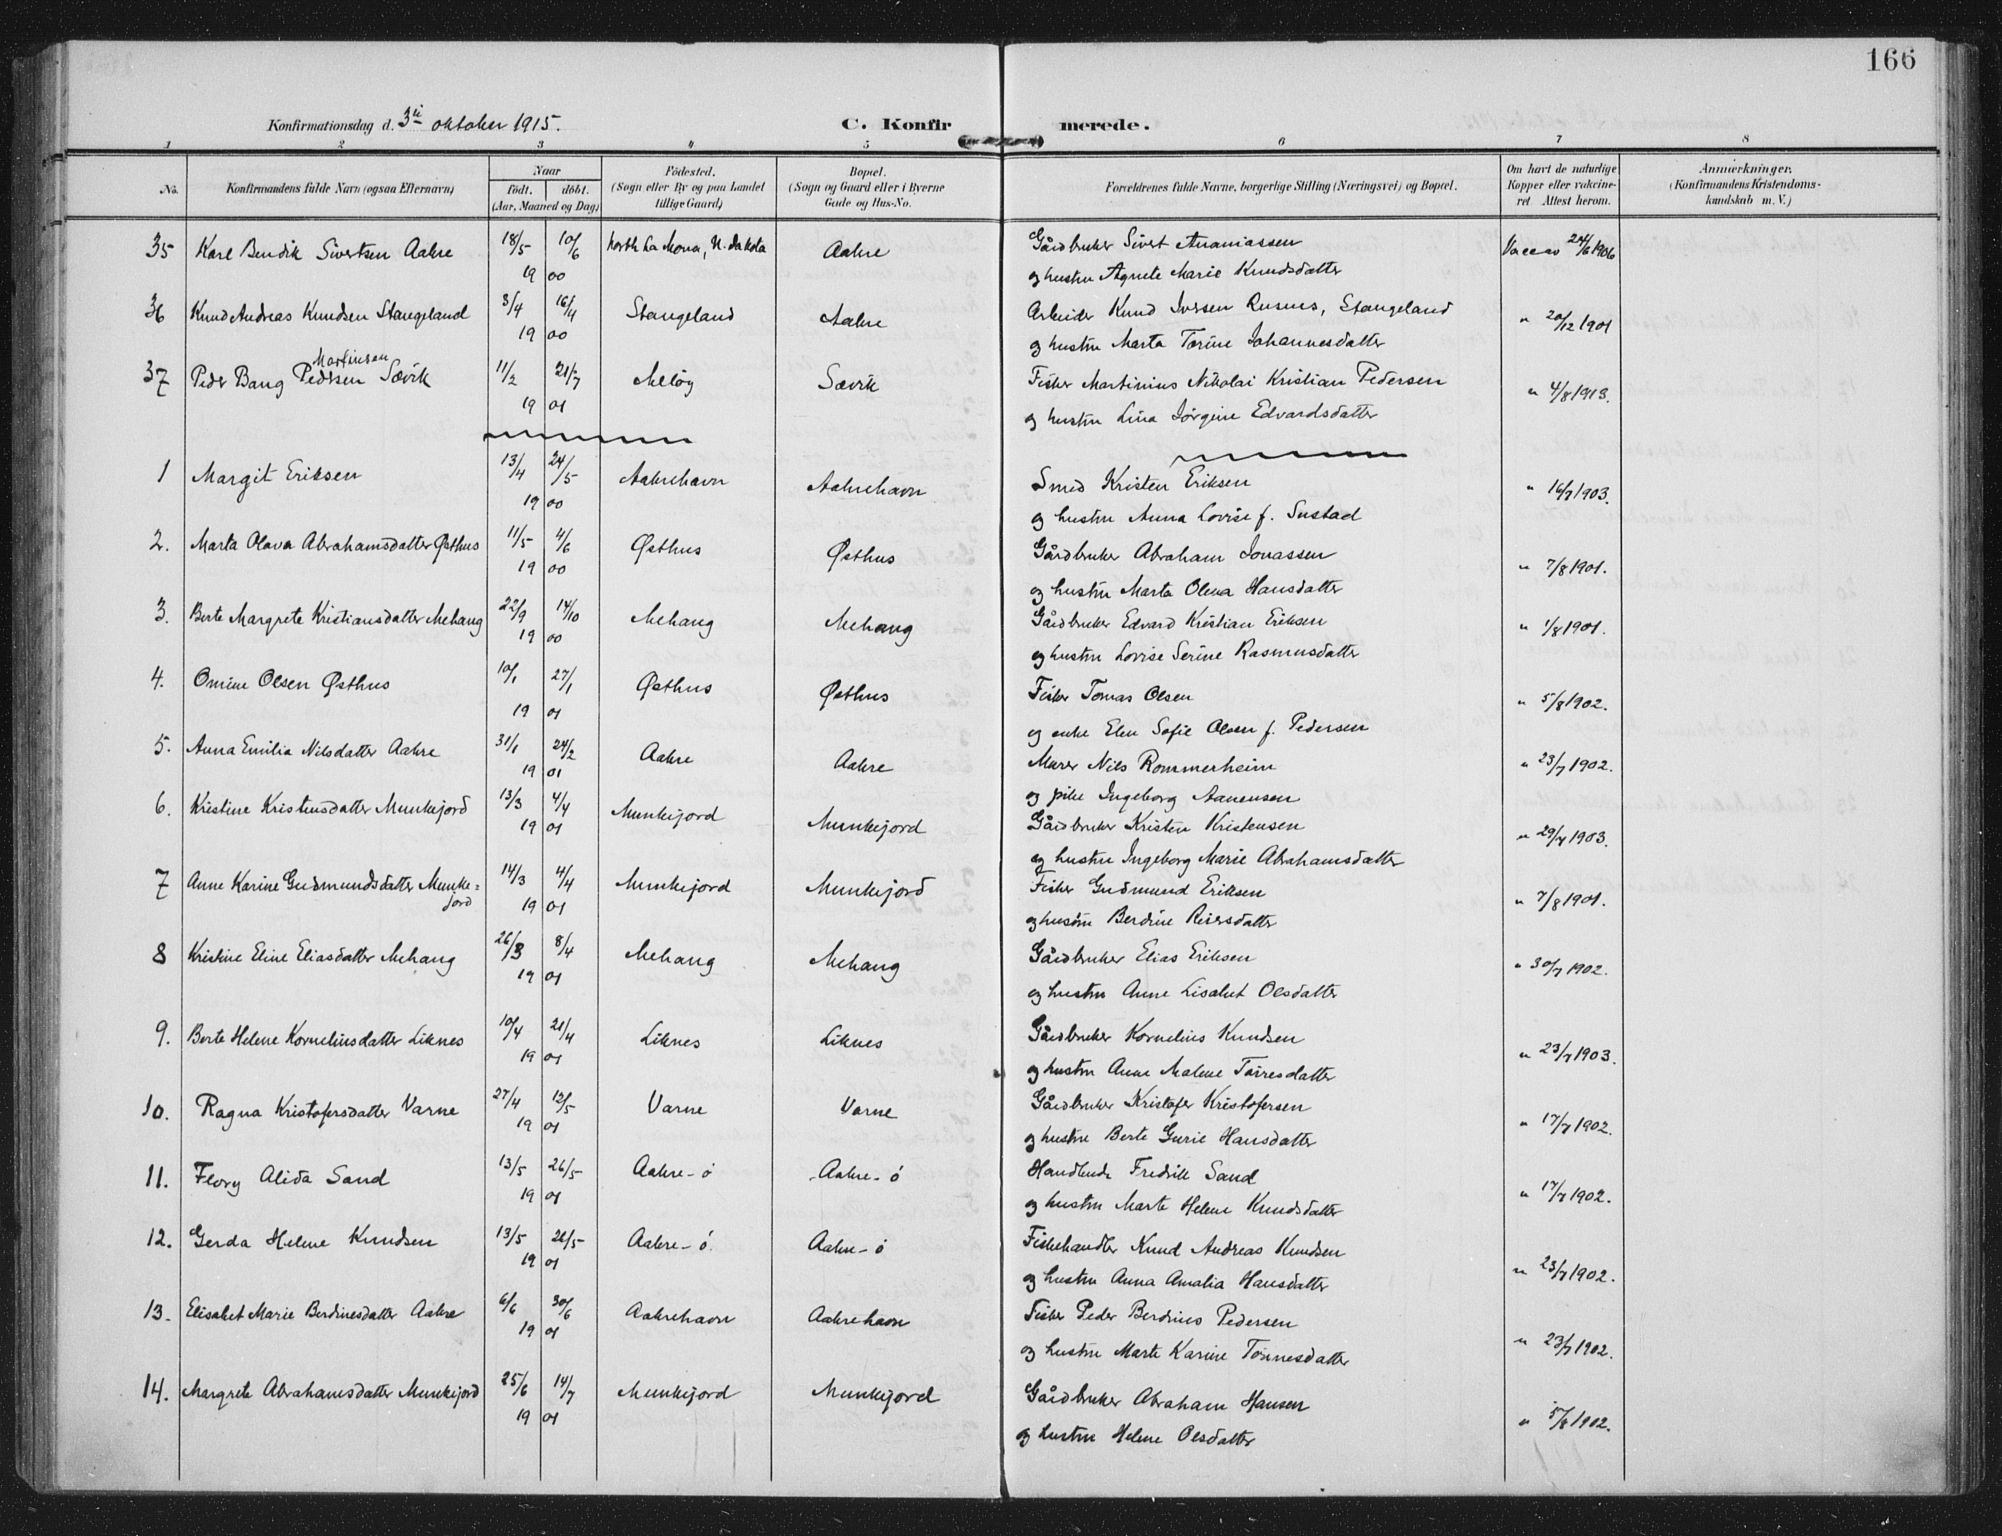 166
Konfirmationsdag d. 3die oktober 1915. C. Konfirmerede.
1 2 3 4 5 6 7 8
No. Konfirmandens fulde Navn (ogsaa Efternavn) Naar født. døbt. (Aar, Maaned og Dag) Fødested. (Sogn eller By og paa Landet tillige Gaard) Bopæl. (Sogn og Gaard eller i Byerne Gade og Hus-No. Forældrenes fulde Navne, borgerlige Stilling (Næringsvei) og Bopæl. Om havt de naturlige Kopper eller vaccineret. Attest herom. Anmærkninger. (Konfirmandens Kristendomskundskab m. V.)
35 Karl Bendik Sivertsen Aakre 18/5 10/6 North La Mona, N. Dakola Aakre Gårdbruker Sivert Ananiassen Vaccav 24/6 1906
19 00 og hustru Agnete Marie Knudsdatter
36 Knud Andreas Knudsen Stangeland 3/4 16/4 Stangeland Aakre Arbeider Knud Iversen Rusnes, Stangeland " 20/12 1901
19 00 og hustru Marta Torine Johannesdatter
Martinsen
37 Peder Bang Pedersen Sævik 11/2 21/7 Meløy Sævik Fisker Martinius Nikolai Kristian Pedersen " 4/8 1913.
19 01 og hustru Lina Jørgine Edvardsdatter
1 Margit Eriksen 13/4 24/5 Aakrehavn Aakrehavn Smed Kristen Eriksen " 16/7 1903.
19 00 og hustru Anna Lovise f. Sustad
2. Marta Olava Abrahamsdatter Østhus 11/5 4/6 Østhus Østhus Gårdbruker Abraham Jonassen " 7/8 1901.
19 00 og hustru Marta Olena Hansdatter
3. Berte Margrete Kristiansdatter Mehang 22/9 14/10 Mehang Mehang Gårdbruker Edvard Kristian Eriksen " 1/8 1901.
19 00 og hustru Lovise Serine Rasmusdatter
4. Omine Olsen Østhus 10/1 27/1 Østhus Østhus Fisker Tomas Olsen " 5/8 1902.
19 01 og enke Elen Sofie Olsen f. Pedersen
5. Anna Emilia Nilsdatter Aakre 31/1 24/2 Aakre Aakre Murer Nils Rommerheim " 23/7 1902.
19 01 og pike Ingeborg Aanensen
6. Kristine Kristensdatter Munkejord 13/3 4/4 Munkejord Munkejord Gårdbruker Kristen Kristensen " 29/7 1903.
19 01 og hustru Ingeborg Marie Abrahamsdatter
7 Anne Karine Gudmundsdatter Munke= 14/3 4/4 Munkejord Munkejord Fisker Gudmund Eriksen " 7/8 1901.
jord 19 01 og hustru Berdine Reiersdatter
8 Kristine Eline Eliasdatter Mehang 26/3 8/4 Mehang Mehang Gårdbruker Elias Eriksen " 30/7 1902.
19 01 og hustru Anne Lisabet Olsdatter
9. Berte Helene Kornelinsdatter Liknes 10/4 21/4 Liknes Liknes Gårdbruker Kornelius Knudsen " 23/7 1903.
19 01 og hustru Anne Malene Torresdatter
10. Ragna Kristofersdatter Varne 27/4 12/5 Varne Varne Gårdbruker Kristofer Kristofersen " 17/7 1902.
19 01 og hustru Berte Gurie Hansdatter
11. Flory Alida Sand 13/5 26/5 Aakre-ö Aakre-ö Handlende Fredrik Sand " 17/7 1902.
19 01 og hustru Marte Helene Knudsdatter
12. Gerda Helene Knudsen 13/5 26/5 Aakre-ö. Aakre-ö Fiskehandler Knud Andreas Knudsen " 23/7 1902.
19 01 og hustru Anna Amalia Hansdatter
13. Elisabet Marie Berdinesdatter Aakre 6/6 30/6 Aakrehavn Aakrehavn Fisker Peder Berdines Pedersen " 23/7 1902.
19 01 og hustru Marte Karine Tønnesdatter
14. Margrete Abrahamsdatter Munkejord 25/6 14/7 Munkejord Munkejord Gårdbruker Abraham Hansen " 5/8 1902.
19 01 og hustru Helene Olsdatter